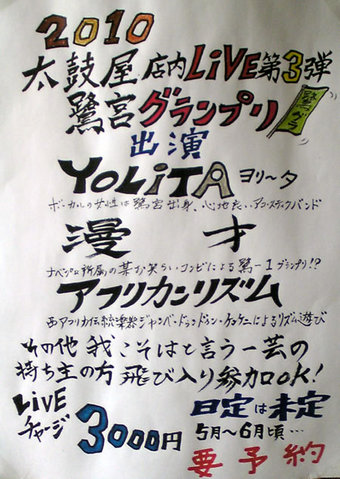 2010
太鼓屋店内LiVE第3弾
鷺宮グランプリ
鷺グラ
出演
YOLiTA ヨリ〜タ
ボーカルの女性は鷺宮出身、心地良いアコースティックバンド
漫才
ナベプロ所属の若お笑いコンビによる鷺-1グランプリ!?
アフリカンリズム
西アフリカ伝統楽器ジャンベ・ドゥンドゥン・ケンケニによるリズム遊び
その他 我こそはと言う一芸の
持ち主の方 飛び入り参加OK!
LiVE
チャージ 3000円
日定は未定
5月〜6月頃…
要予約